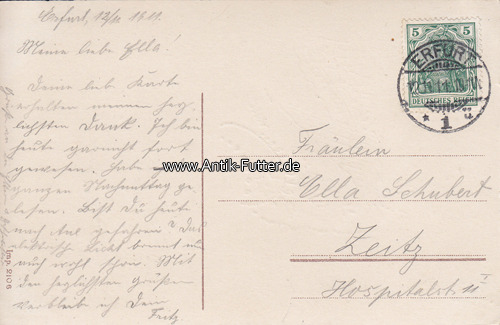 Erfurt, 12/11 1911.
Meine liebe Ella!
Deine lieb. Karte
erhalten meinen herz-
lichsten Dank. Ich bin
heute garnicht fort
gewesen. Habe
ganzen Nachmittag ge-
lesen. Bist Du heute
nach Aue gefahren? Das
elektrische Licht brennt nun
auch wohl schon. Mit
den herzlichsten Grüßen
verbleibe ich Dein
Fritz
Imp. 2106
5 5
DEUTSCHES REICH
ERFURT
* 1 c
www.Antik-Futter.de
Fräulein
Ella Schubert
Zeitz
Hospitalstr 11